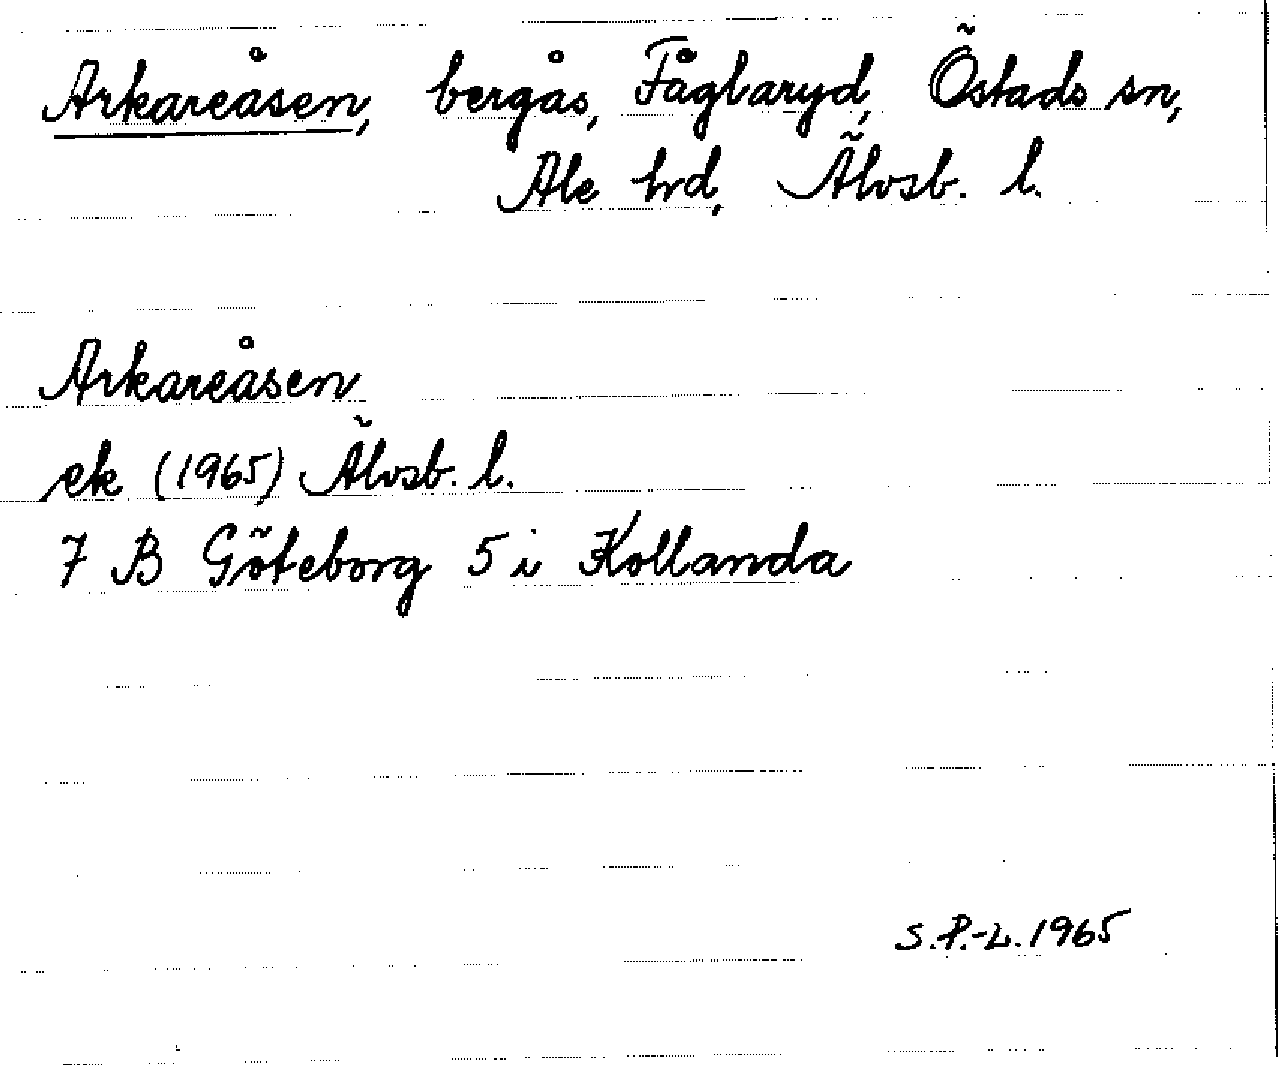 Arkareåsen, bergås, Fåglaryd, Östads sn,
Ale hrd, Älvsb. l.
Arkareåsen
ek (1965) Älvsb. l.
7 B Göteborg 5 i Kollanda
S.P.-L. 1965